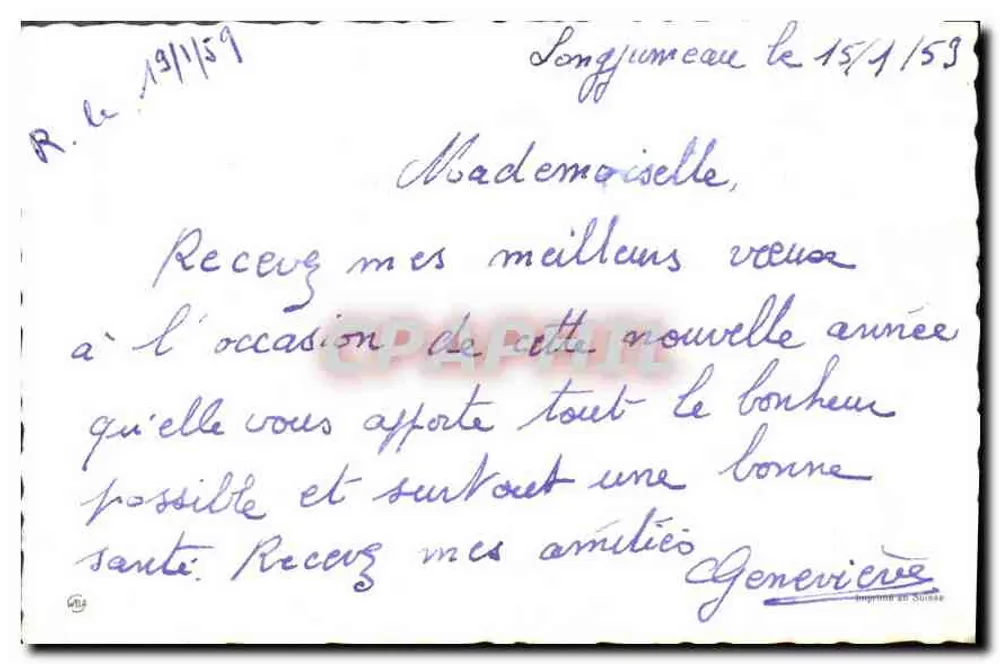 R. le 19/1/59
Longjumeau le 15/1/59
Mademoiselle,
Recevez mes meilleurs vœux
à l'occasion de cette nouvelle année
qu'elle vous apporte tout le bonheur
possible et surtout une bonne
santé. Recevez mes amitiés
Geneviève
Imprimé en Suisse
CPAPHIL